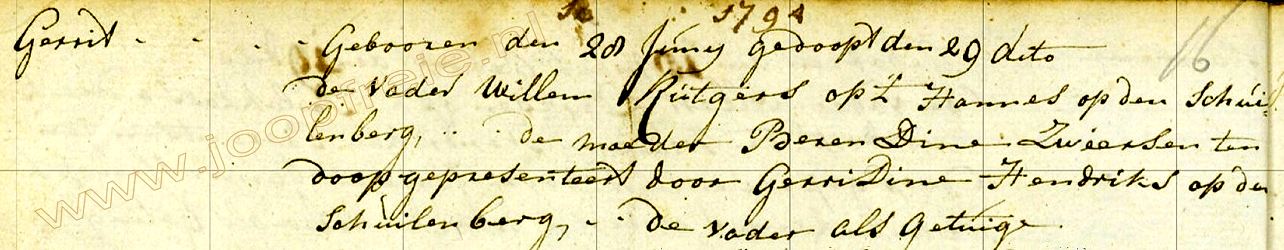 1794
16
Gerrit - - - - Gebooren den 28 Juny gedoopt den 29 dito
de vader Willem Rutgers op't Hannes op den Schúi-
lenberg, .. - de moeder BerenDine Zweersen ten
doop gepresenteert door GerriDine Hendriks op den
Schùilenberg, - - de vader als Getuige.